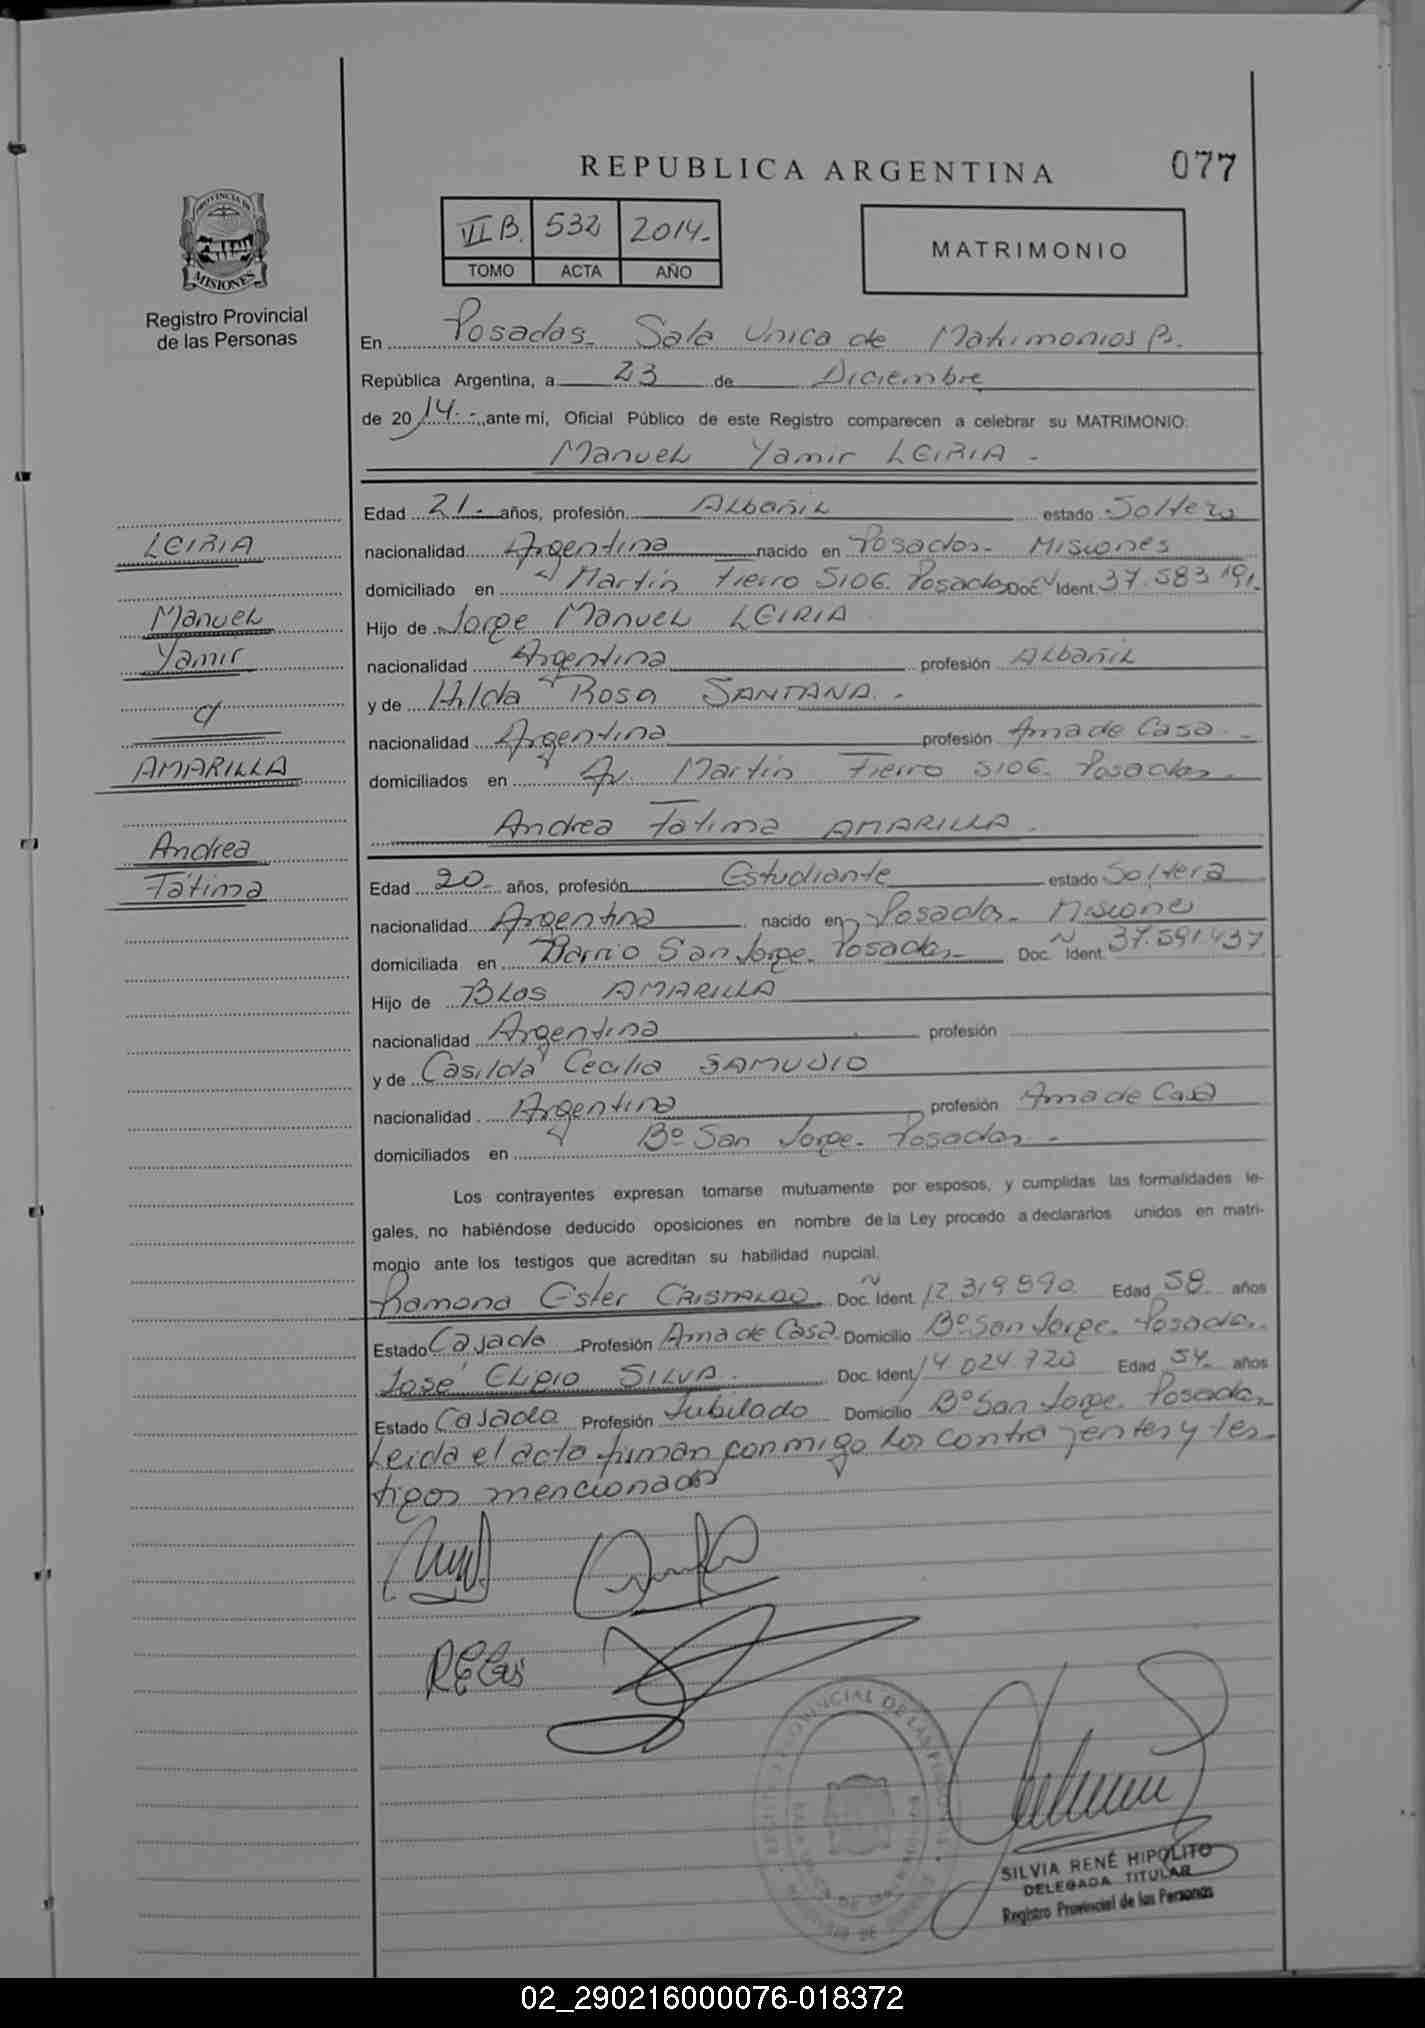 REPUBLICA ARGENTINA
077
PROVINCIA DE
MISIONES
Registro Provincial
de las Personas
VI B. 532 2014.-
TOMO ACTA AÑO
MATRIMONIO
En Posadas- Sala Unica de Matrimonios B.
República Argentina, a 23 de Diciembre
de 2014.- ante mi, Oficial Público de este Registro comparecen a celebrar su MATRIMONIO:
Manuel Yamir LEIRIA -
Edad 21.- años, profesión Albañil estado Soltero
nacionalidad Argentina nacido en Posadas- Misiones
domiciliado en Martín Fierro 5106. Posadas Doc. Ident. 37.583.191.
Hijo de Jorge Manuel LEIRIA
nacionalidad Argentina profesión Albañil
y de Hilda Rosa SANTANA. -
nacionalidad Argentina profesión Ama de Casa. -
domiciliados en Av. Martín Fierro 5106. Posadas.
Andrea Fátima AMARILLA.
Edad 20.- años, profesión Estudiante estado Soltera
nacionalidad Argentina nacido en Posadas- Misiones
domiciliada en Barrio San Jorge. Posadas- Doc. Ident. 37.591.437
Hijo de Blas AMARILLA
nacionalidad Argentina profesión
y de Casilda Cecilia SAMUDIO
nacionalidad Argentina profesión Ama de Casa
domiciliados en Bº San Jorge. Posadas. -
Los contrayentes expresan tomarse mutuamente por esposos, y cumplidas las formalidades le-
gales, no habiéndose deducido oposiciones en nombre de la Ley procedo a declararlos unidos en matri-
monio ante los testigos que acreditan su habilidad nupcial.
Ramona Ester CRISTALDO Doc. Ident. 12.319.890. Edad 58 años
Estado Casada Profesión Ama de Casa. Domicilio Bº San Jorge. Posadas.
José Elipio SILVA. Doc. Ident. 14.024.720 Edad 54 años
Estado Casado Profesión Jubilado Domicilio Bº San Jorge. Posadas
Leida el acta firman conmigo los contrayentes y tes-
tigos mencionados
LEIRIA
Manuel
Yamir
c/
AMARILLA
Andrea
Fátima
SILVIA RENÉ HIPOLITO
DELEGADA TITULAR
Registro Provincial de las Personas
02_290216000076-018372